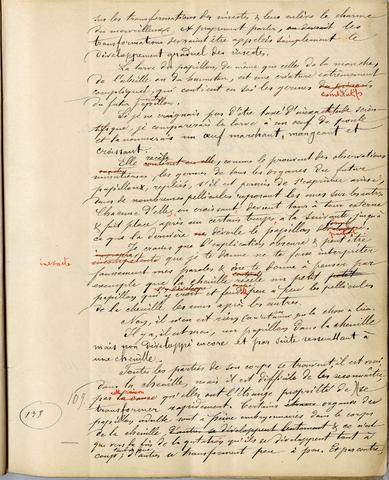 sur les transformations des insectes, & leur enlève le charme
du merveilleux. A proprement parler, ces
transformations devraient être appelées simplement le
développement graduel des insectes.
La larve du papillon, de même que celle de la mouche,
de l'abeille ou du hanneton, est une créature extrêmement
compliquée, qui contient en soi les germes
constitutifs
du futur papillon.
Si je ne craignais pas d'être taxé d'inexactitude scien-
tifique, je comparerais la larve à un oeuf de poule
et la nommerais un oeuf marchant, mangeant et
croissant.
Elle recèle, comme le prouvent des observations
minutieuses, les germes de tous les organes du futur
papillon, repliés, s'il est permis de s'exprimer ainsi,
dans de nombreuses pellicules reposant les unes sur les autres.
Chacune d'elles, en croissant, devient tour à tour externe
& fait place, après un certain temps, à la suivante jusqu'à
ce que la dernière dévoile le papillon
Je crains que l'explication obscure & peut être
inexacte
que je te donne ne te fasse interpréter
faussement mes paroles & ne te donne à penser par
exemple que la chenille recèle un petit
papillon qui y croît et fend peu à peu les pellicules
de la chenille, les unes après les autres.
Non, il n'en est rien
Il y a, il est vrai, un papillon dans la chenille
mais non développé encore et pas suite ressemblant à
une chenille.
Toutes les parties de son corps se trouvent, il est vrai,
dans la chenille, mais il est difficile de les reconnaître
109
par la cause qu'elles ont l'étrange propriété de se
138
transformer rapidement. Certains organes du
papillon adulte sont à peine embryonnaires dans le corps
de la chenille & ce n'est
que vers la fin de la mutation qu'ils se développent tout à
coup; d'autres se transforment peu à peu. Et par contre,